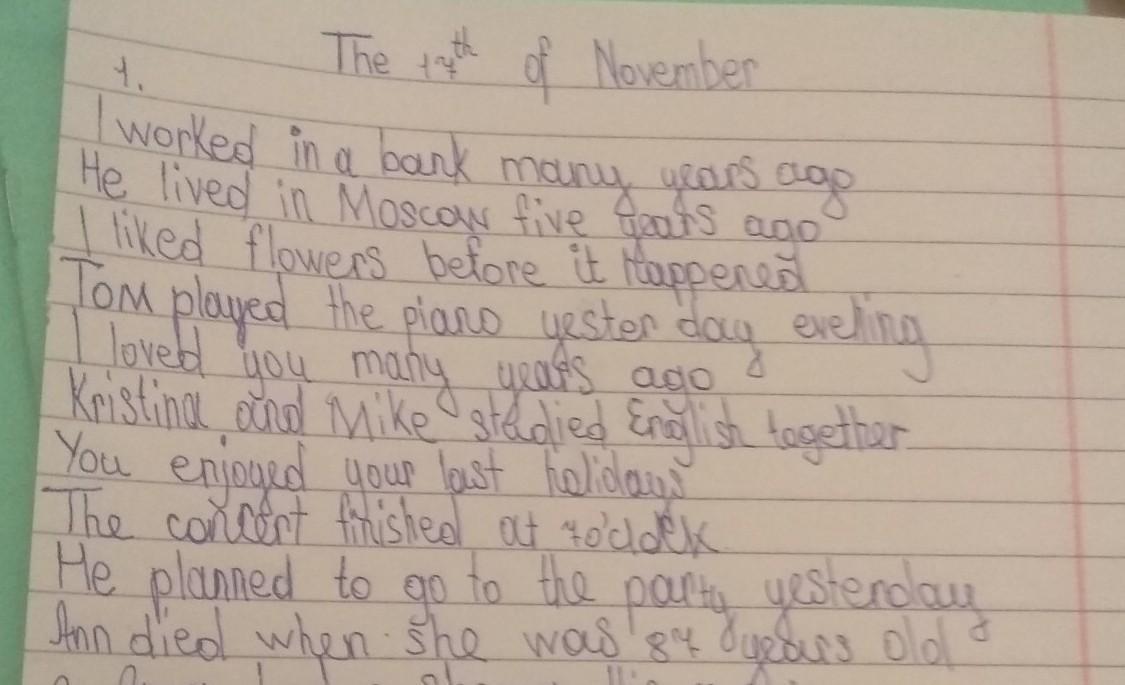 The 17th of November
1.
I worked in a bank many years ago
He lived in Moscow five years ago
I liked flowers before it happened
Tom played the piano yesterday evening
I loved you many years ago
Kristina and Mike studied English together
You enjoyed your last holidays
The concert finished at 7 o'clock
He planned to go to the party yesterday
Ann died when she was 87 years old